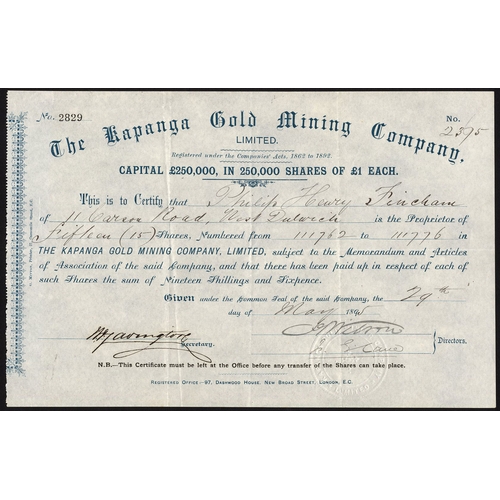 No. 2829
No.
The Kapanga Gold Mining Company,
LIMITED.
Registered under the Companies' Acts, 1862 to 1892.
CAPITAL £250,000, IN 250,000 SHARES OF £1 EACH.
This is to Certify that Philip Henry Fincham
of 11 Carson Road, West Dulwich is the Proprietor of
Fifteen (15) Shares, Numbered from 111762 to 111776 in
THE KAPANGA GOLD MINING COMPANY, LIMITED, subject to the Memorandum and Articles
of Association of the said Company, and that there has been paid up in respect of each of
such Shares the sum of Nineteen Shillings and Sixpence.
Given under the Common Seal of the said Company, the 29th
day of May 1895
Secretary.
Directors.
N.B.—This Certificate must be left at the Office before any transfer of the Shares can take place.
REGISTERED OFFICE:—97, DASHWOOD HOUSE, NEW BROAD STREET, LONDON, E.C.